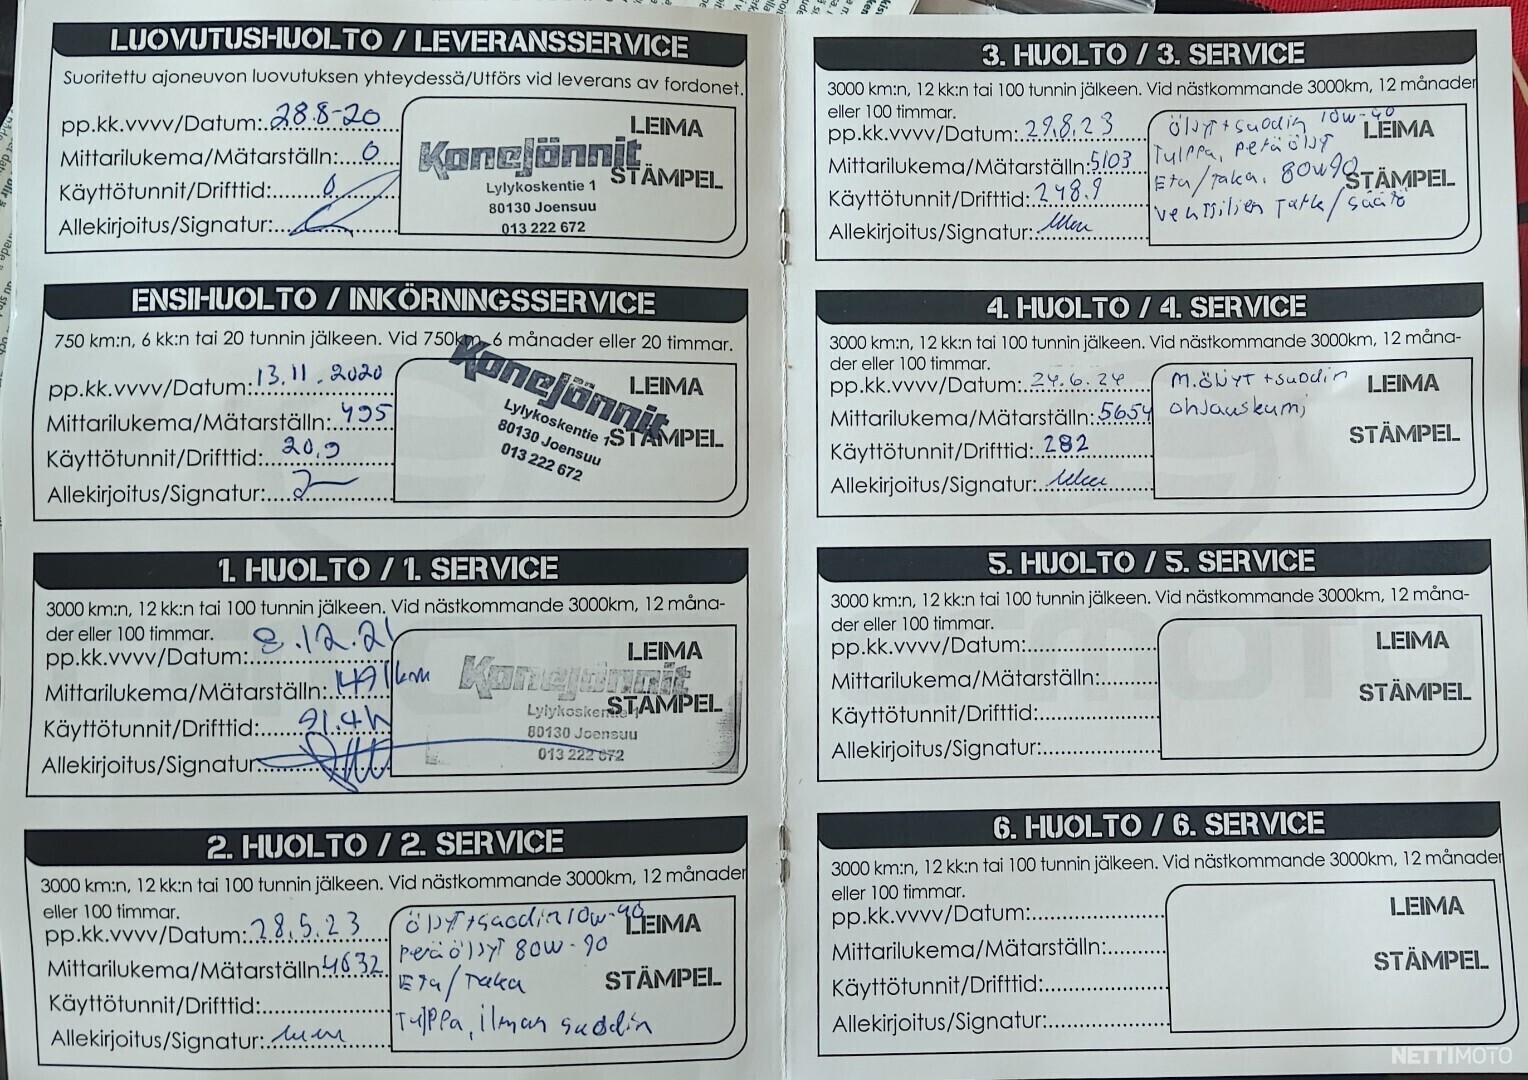 LUOVUTUSHUOLTO / LEVERANSSERVICE
Suoritettu ajoneuvon luovutuksen yhteydessä/Utförs vid leverans av fordonet.
pp.kk.vvvv/Datum: 28.8-20
Mittarilukema/Mätarställn: 0
Käyttötunnit/Drifttid: 0
Allekirjoitus/Signatur:
LEIMA
STÄMPEL
Konejönnit
Lylykoskentie 1
80130 Joensuu
013 222 672
ENSIHUOLTO / INKÖRNINGSSERVICE
750 km:n, 6 kk:n tai 20 tunnin jälkeen. Vid 750km, 6 månader eller 20 timmar.
pp.kk.vvvv/Datum: 13.11.2020
Mittarilukema/Mätarställn: 495
Käyttötunnit/Drifttid: 20,9
Allekirjoitus/Signatur:
LEIMA
STÄMPEL
Konejönnit
Lylykoskentie 1
80130 Joensuu
013 222 672
1. HUOLTO / 1. SERVICE
3000 km:n, 12 kk:n tai 100 tunnin jälkeen. Vid nästkommande 3000km, 12 måna-
der eller 100 timmar.
pp.kk.vvvv/Datum: 8.12.21
Mittarilukema/Mätarställn: 1491km
Käyttötunnit/Drifttid: 91.4h
Allekirjoitus/Signatur:
LEIMA
STÄMPEL
Konejönnit
Lylykoskentie 1
80130 Joensuu
013 222 672
2. HUOLTO / 2. SERVICE
3000 km:n, 12 kk:n tai 100 tunnin jälkeen. Vid nästkommande 3000km, 12 månader
eller 100 timmar.
pp.kk.vvvv/Datum: 28.5.23
Mittarilukema/Mätarställn: 4632
Käyttötunnit/Drifttid:
Allekirjoitus/Signatur:
LEIMA
STÄMPEL
ÖLJYT+suodin 10w-40
peräöljyt 80w-90
Etu/Taka
Tulppa, ilman suodin
3. HUOLTO / 3. SERVICE
3000 km:n, 12 kk:n tai 100 tunnin jälkeen. Vid nästkommande 3000km, 12 månader
eller 100 timmar.
pp.kk.vvvv/Datum: 29.8.23
Mittarilukema/Mätarställn: 5103
Käyttötunnit/Drifttid: 248.9
Allekirjoitus/Signatur:
LEIMA
STÄMPEL
ÖLJYT+suodin 10w-40
Tulppa, peräöljyt
Etu/Taka. 80w90
venttiilien Tark/säätö
4. HUOLTO / 4. SERVICE
3000 km:n, 12 kk:n tai 100 tunnin jälkeen. Vid nästkommande 3000km, 12 måna-
der eller 100 timmar.
pp.kk.vvvv/Datum: 24.6.24
Mittarilukema/Mätarställn: 5654
Käyttötunnit/Drifttid: 282
Allekirjoitus/Signatur:
LEIMA
STÄMPEL
M.ÖLJYT+suodin
ohjauskumi
5. HUOLTO / 5. SERVICE
3000 km:n, 12 kk:n tai 100 tunnin jälkeen. Vid nästkommande 3000km, 12 måna-
der eller 100 timmar.
pp.kk.vvvv/Datum:
Mittarilukema/Mätarställn:
Käyttötunnit/Drifttid:
Allekirjoitus/Signatur:
LEIMA
STÄMPEL
6. HUOLTO / 6. SERVICE
3000 km:n, 12 kk:n tai 100 tunnin jälkeen. Vid nästkommande 3000km, 12 månader
eller 100 timmar.
pp.kk.vvvv/Datum:
Mittarilukema/Mätarställn:
Käyttötunnit/Drifttid:
Allekirjoitus/Signatur:
LEIMA
STÄMPEL
NETTIMOTO